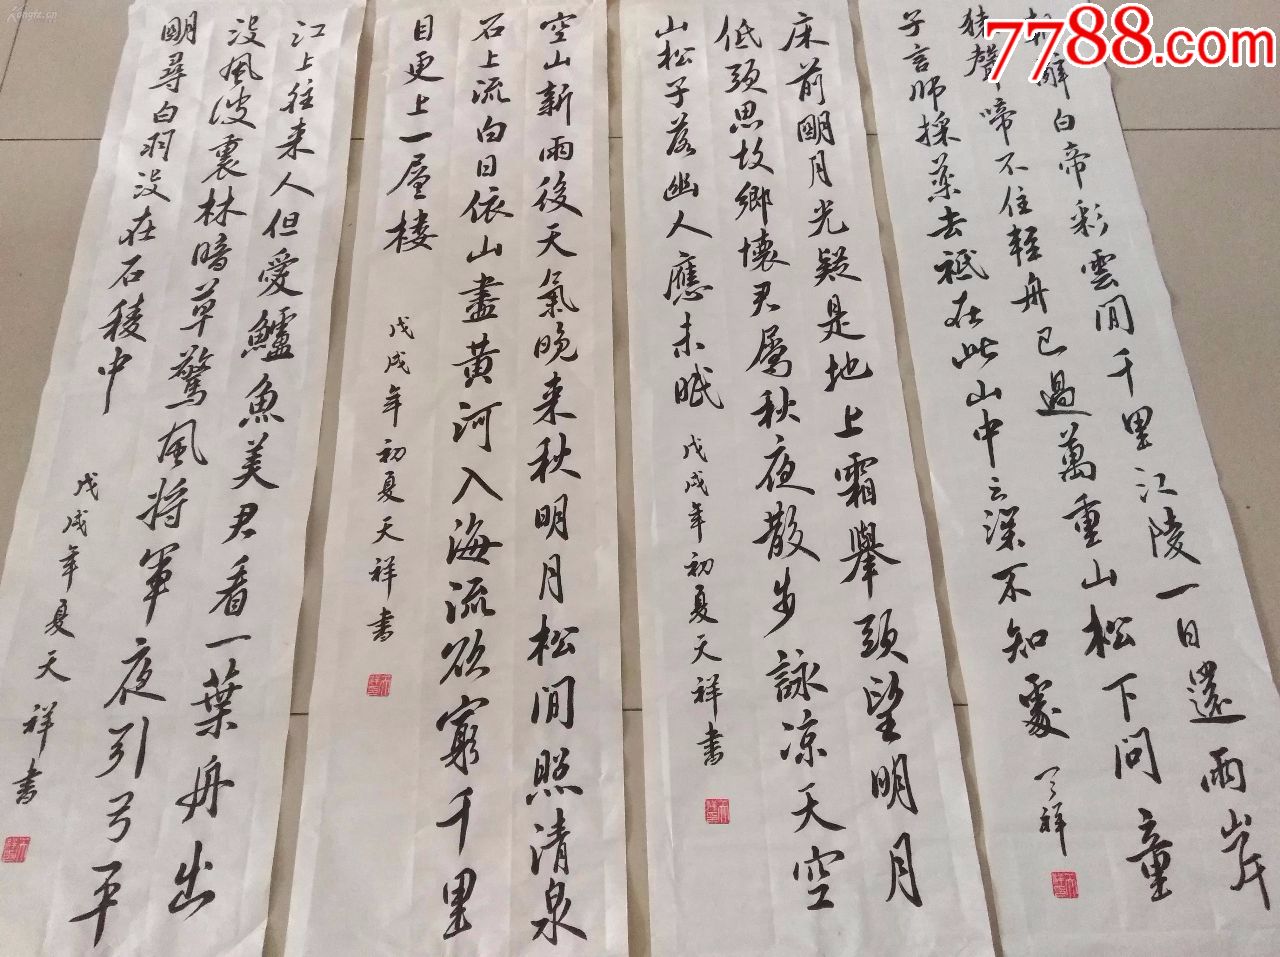 7788.com
朝辭白帝彩雲間千里江陵一日還兩岸
猿聲啼不住輕舟已過萬重山松下問童
子言師採藥去衹在此山中云深不知處
天祥
床前明月光疑是地上霜舉頭望明月
低頭思故鄉懷君屬秋夜散步詠凉天空
山松子落幽人應未眠
戊戌年初夏天祥書
空山新雨後天氣晚來秋明月松間照清泉
石上流白日依山盡黃河入海流欲窮千里
目更上一層樓
戊戌年初夏天祥書
江上往来人但愛鱸魚美君看一葉舟出
沒風波裏林暗草驚風將軍夜引弓平
明尋白羽沒在石稜中
戊戌年夏天祥書